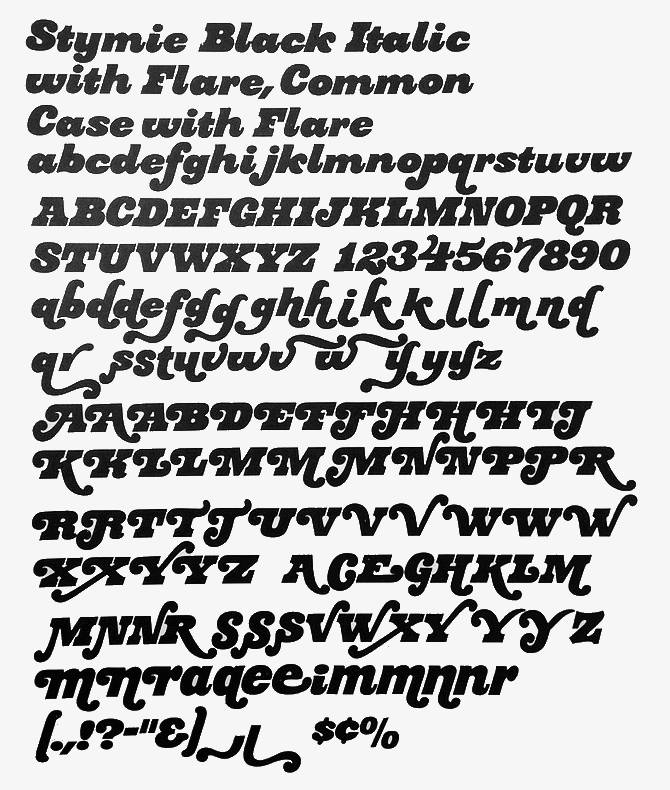 Stymie Black Italic
with Flare, Common
Case with Flare
abcdefghijklmnopqrstuvw
ABCDEFGHIJKLMNOPQR
STUVWXYZ 1234567890
qbddefggghhikkllmnq
qr sstyvwv w yyyz
AAABDEFFHHHIJ
KKLLMMMMNNPPR
RRTTTUVVVWWW
XXYYZ ACEGHKLM
MNNRSSSVWXYYYZ
mnraqeeimmnnr
[.,!?-"&] $¢%